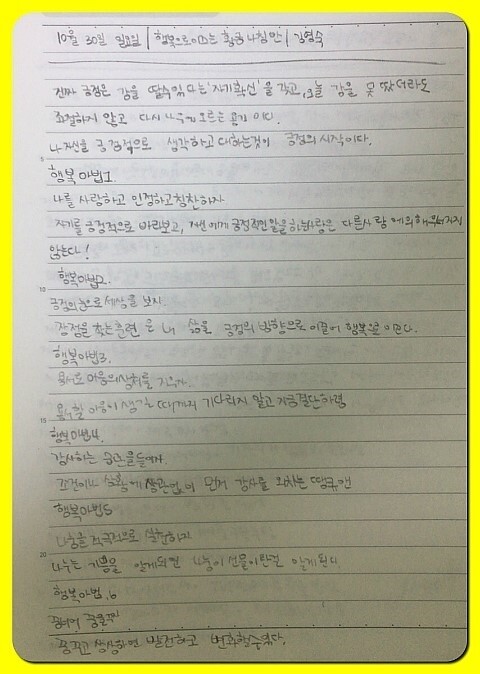 10월 30일 일요일 / 행복으로 이끄는 황금나침반 / 김영숙
진짜 긍정은 감을 딸수있다는 '자기확신'을 갖고, 오늘 감을 못 땄더라도
좌절하지 않고 다시 나무에 오르는 용기 이다.
나자신을 긍정적으로 생각하고 대하는것이 긍정의 시작이다.
행복 마법1
나를 사랑하고 인정하고 칭찬하자.
자기를 긍정적으로 바라보고, 자신에게 긍정적인 말을 하는사람은 다른사람에 의해 무너지지
않는다!
행복마법2.
긍정의 눈으로 세상을 보자.
장점을 찾는 훈련은 내 삶을 긍정의 방향으로 이끌어 행복을 이끈다.
행복마법3.
용서로 마음의 상처를 지우자.
용서할 마음이 생길 때까지 기다리지 말고 지금 결단하렴
행복마법4.
감사하는 습관을 들이자.
조건이나 상황에 상관없이 먼저 감사를 외치는 땡큐맨
행복마법5
나눔을 적극적으로 실천하자
나누는 기쁨을 알게되면 나눔이 선물이란걸 알게된다.
행복마법.6
꿈꾸고 상상하면 발전하고 변화할수있다.